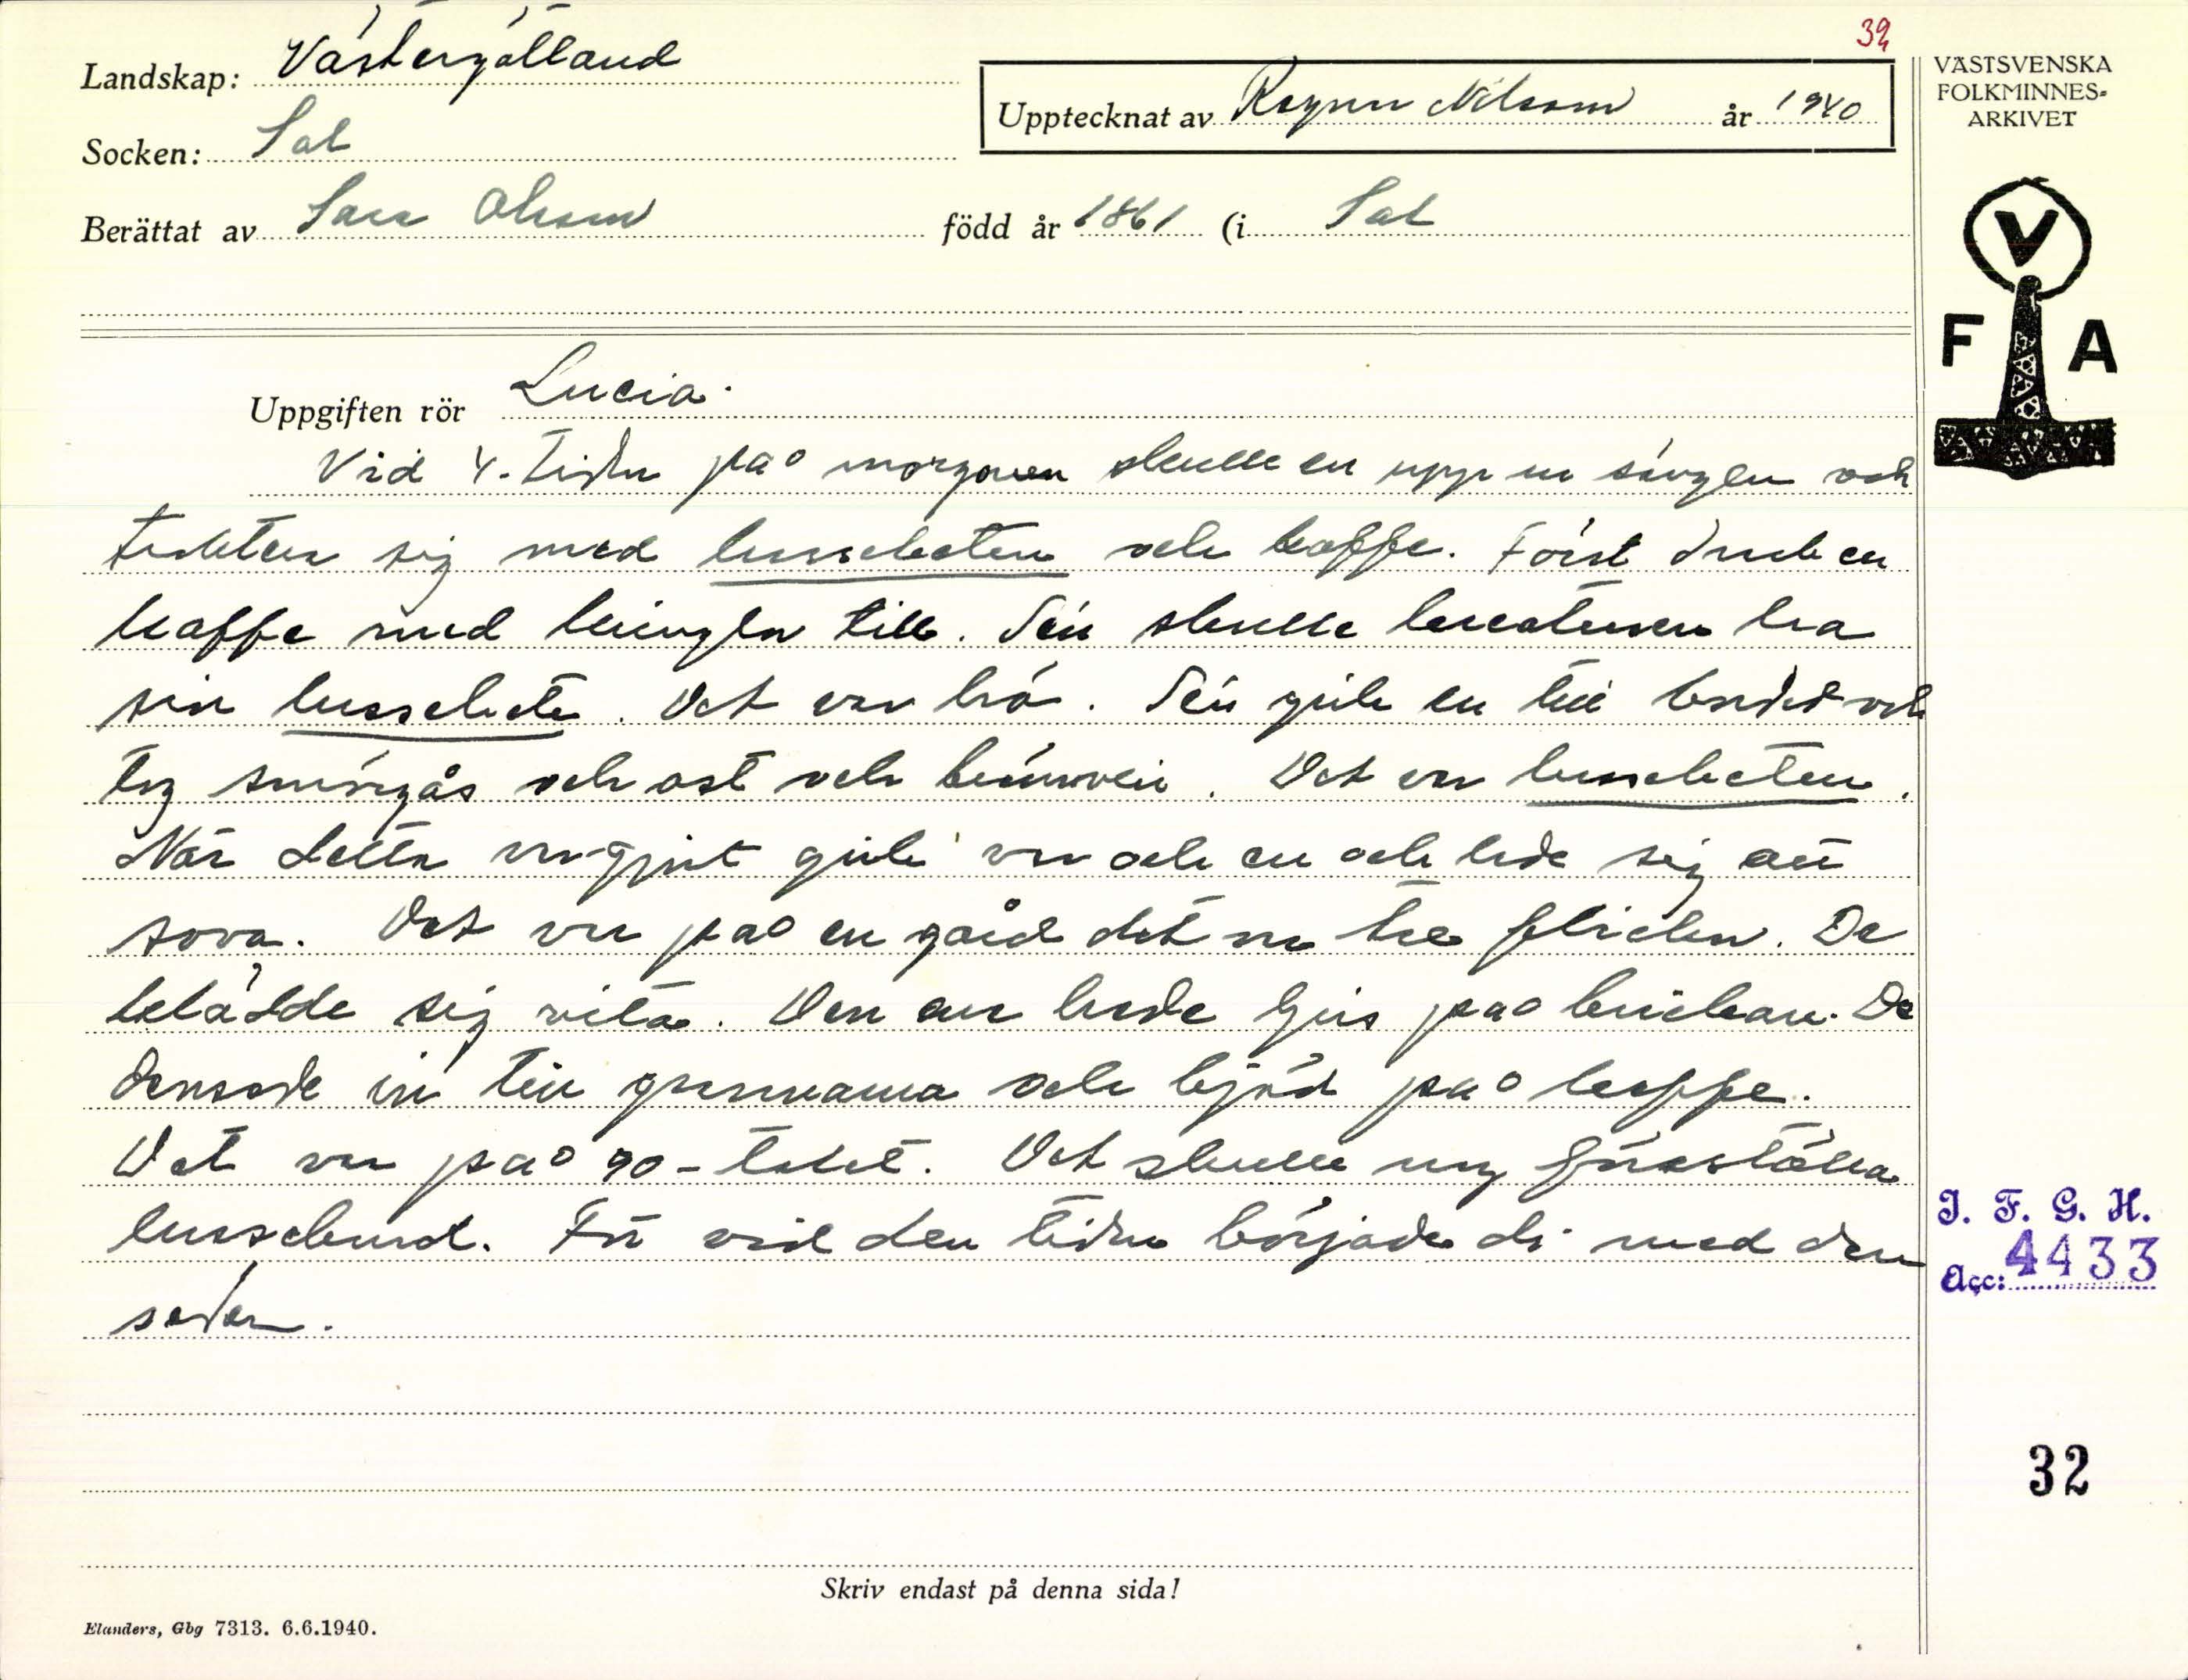 32
Landskap: Västergötland
Upptecknat av Ragnar Nilsson år 1940
VÄSTSVENSKA
FOLKMINNES-
ARKIVET
Socken: Sal
Berättat av Lars Olsson född år 1861 (i Sal
V
F A
Uppgiften rör Lucia.
Vid 4-tiden på morgonen skulle en upp ur sängen och
sig med lussebeten och kaffe. Först drack en
kaffe med till. Sen skulle kreaturen ha
sin lussebete. Det var hö. Sen gick en till bordet och
tog smörgås och ost och brännvin. Det var lussebeten.
När detta var gjort gick var och en och lade sig att
sova. Det var på en gård det var tre flickor. De
klädde sig vita. Den ena hade ljus på brickan. De
dansade in till grannarna och bjöd på kaffe.
Det var på 90-talet. Det skulle nog föreställa
lussebrud. För vid den tiden började di med den
seden.
I. F. G. H.
Acc: 4433
32
Skriv endast på denna sida!
Elanders, Gbg 7313. 6.6.1940.